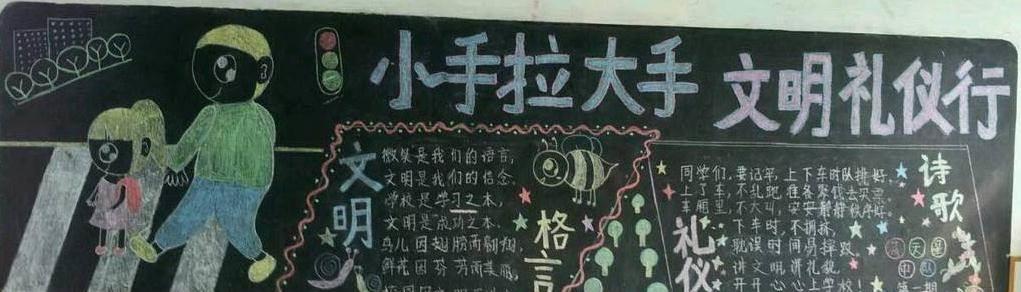 小手拉大手 文明礼仪行
文明
格言
微笑是我们的语言,
文明是我们的信念。
学校是学习之本,
文明是成功之本,
鸟儿因翅膀而翱翔,
鲜花因芬芳而美丽,
礼仪
诗歌
同学们,要记牢,上下车时队排好。
上了车,不乱跑,准备零钱去买票
车厢里,不大叫,安安静静秩序好
下车时,不拥挤,
耽误时间易摔跤。
讲文明讲礼貌,
开开心心上学校!
满天星
中队
第一期